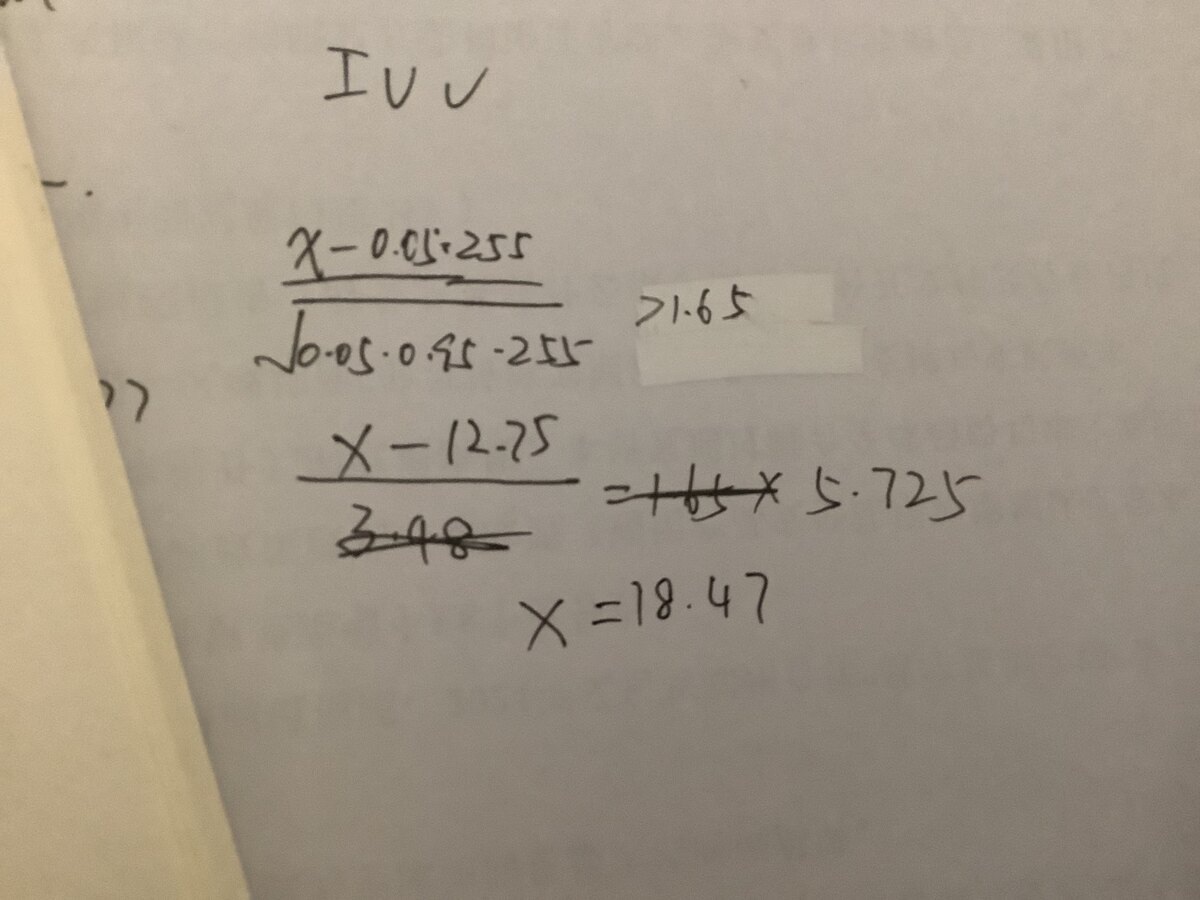 IUU
x-0.05·255
√0.05·0.95·255 >1.65
x-12.75
3.48 =1.65x 5.725
x=18.47